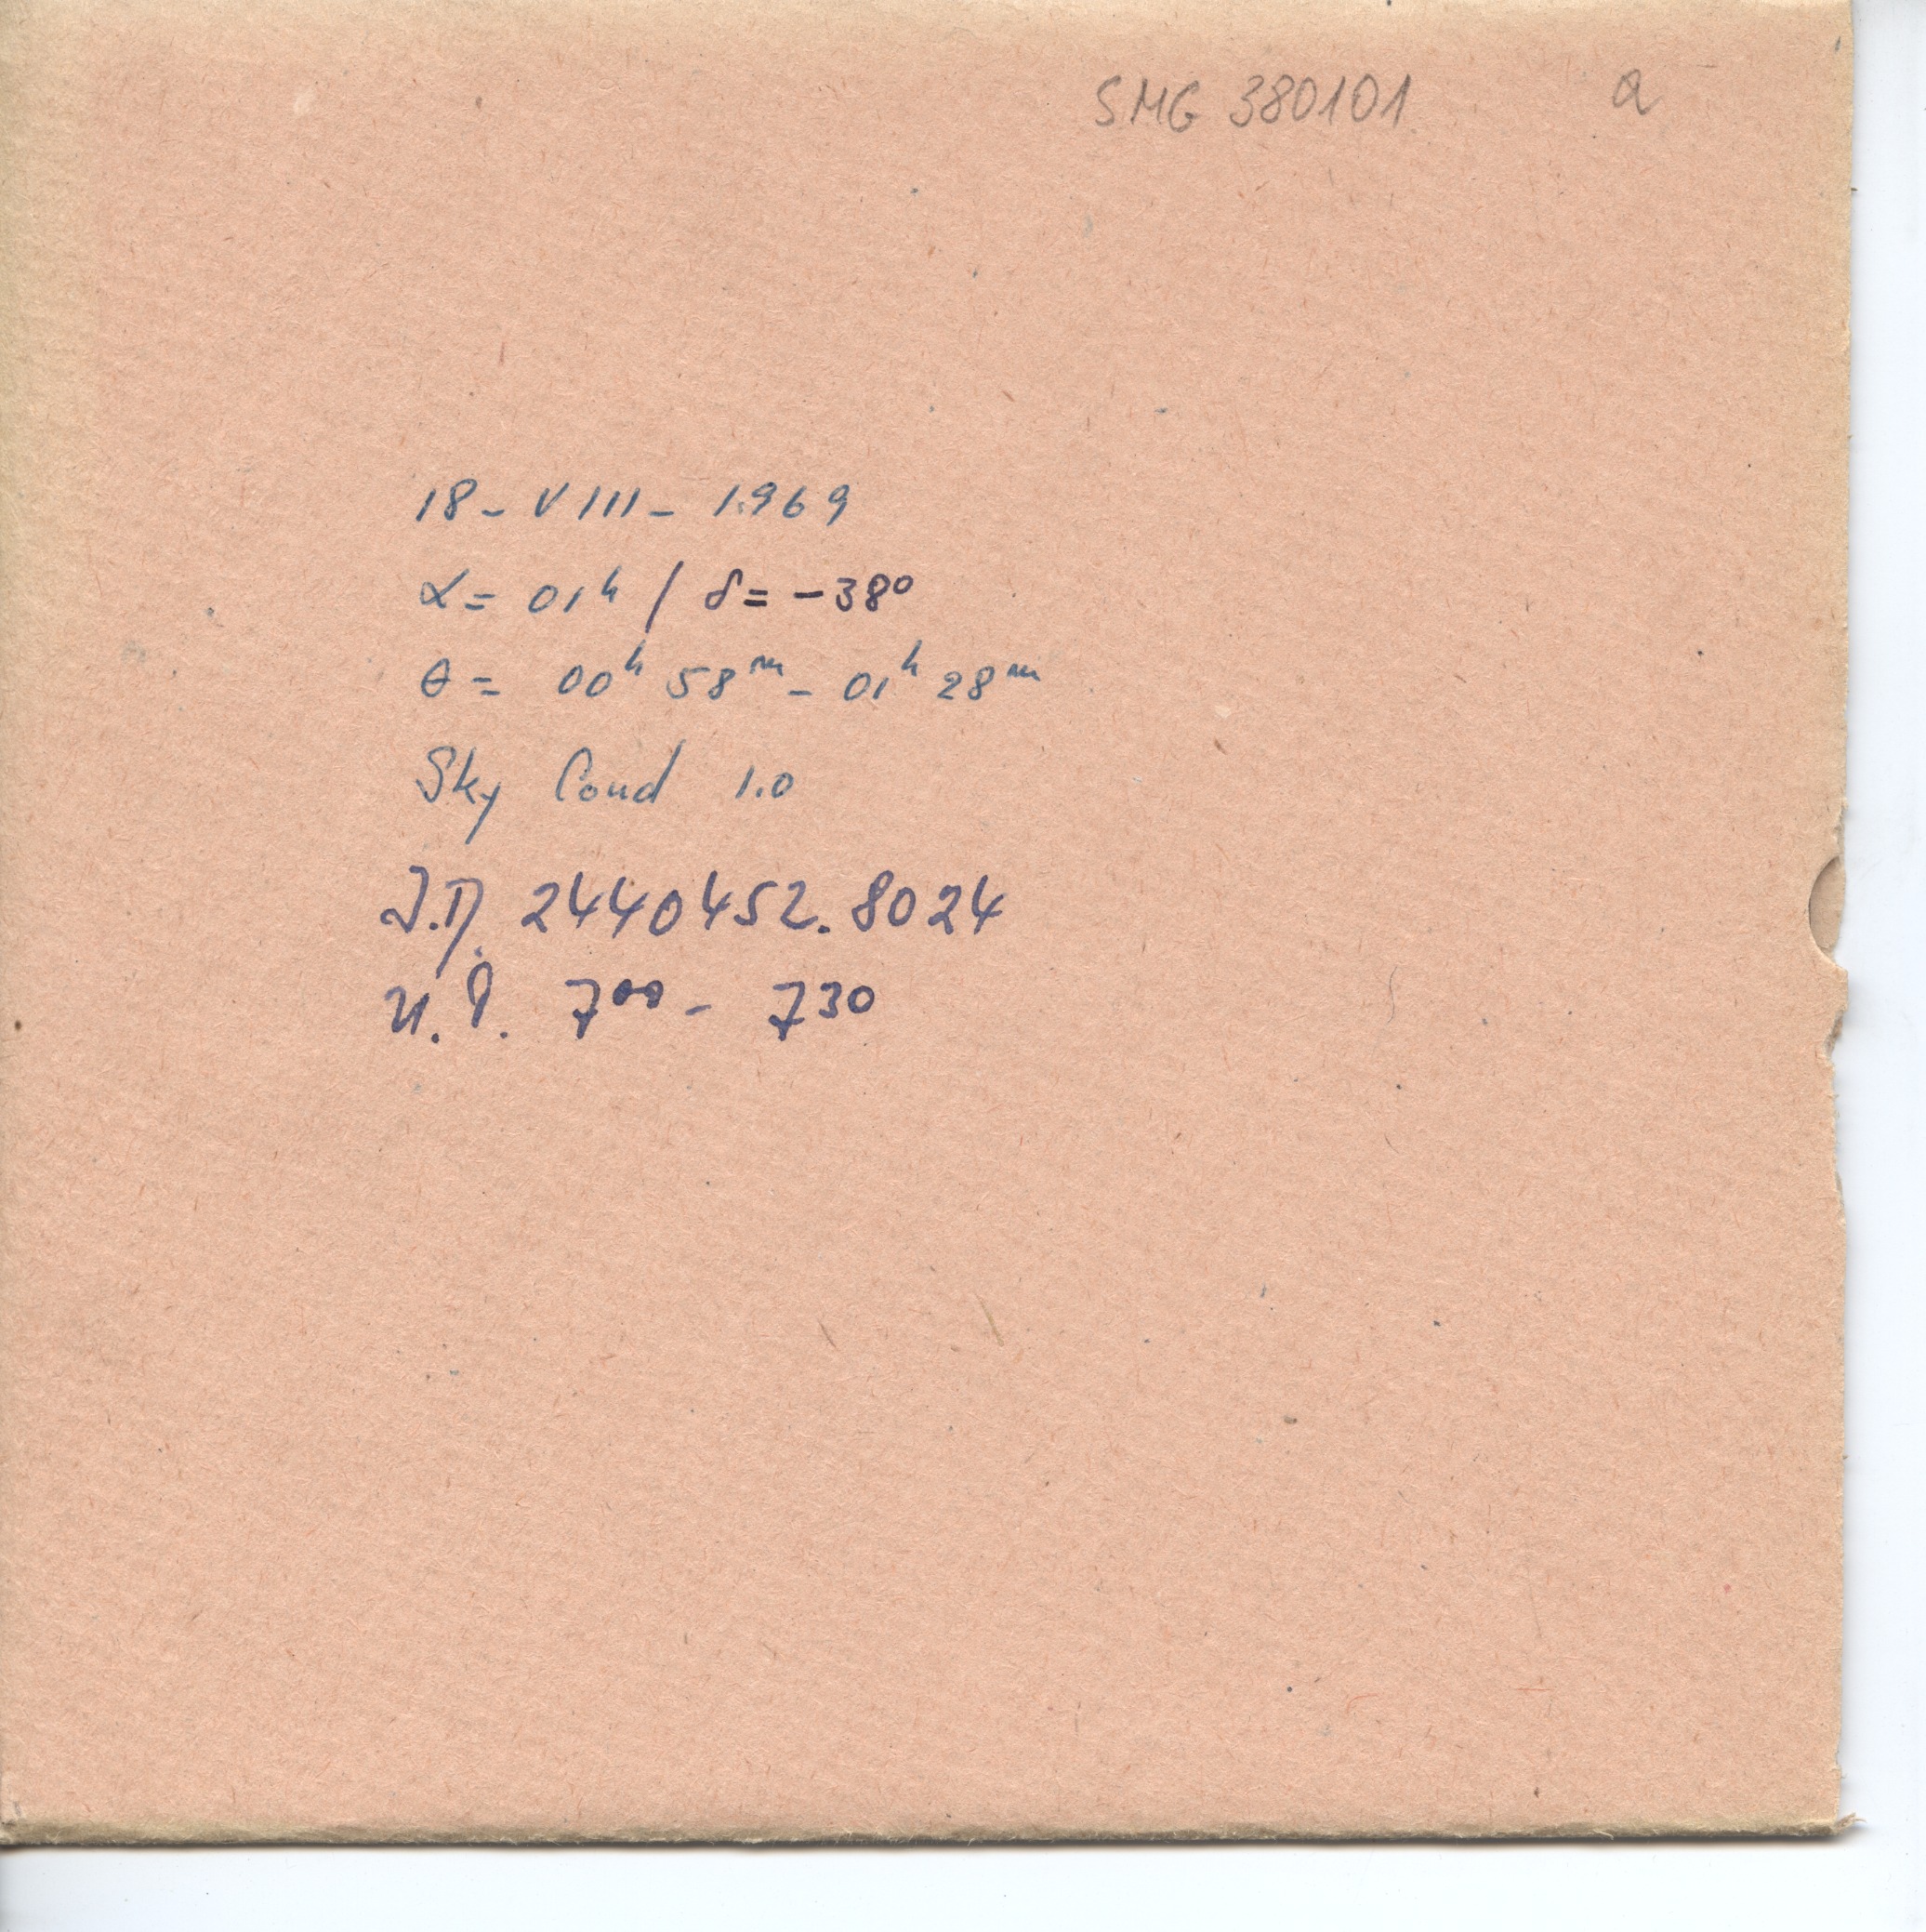 SMG 380101 a
18-VIII-1969
α = 01ʰ / δ = -38°
θ = 00ʰ 58ᵐ - 01ʰ 28ᵐ
Sky Cond 1.0
J.D. 2440452.8024
U.T. 7⁰⁰ - 7³⁰